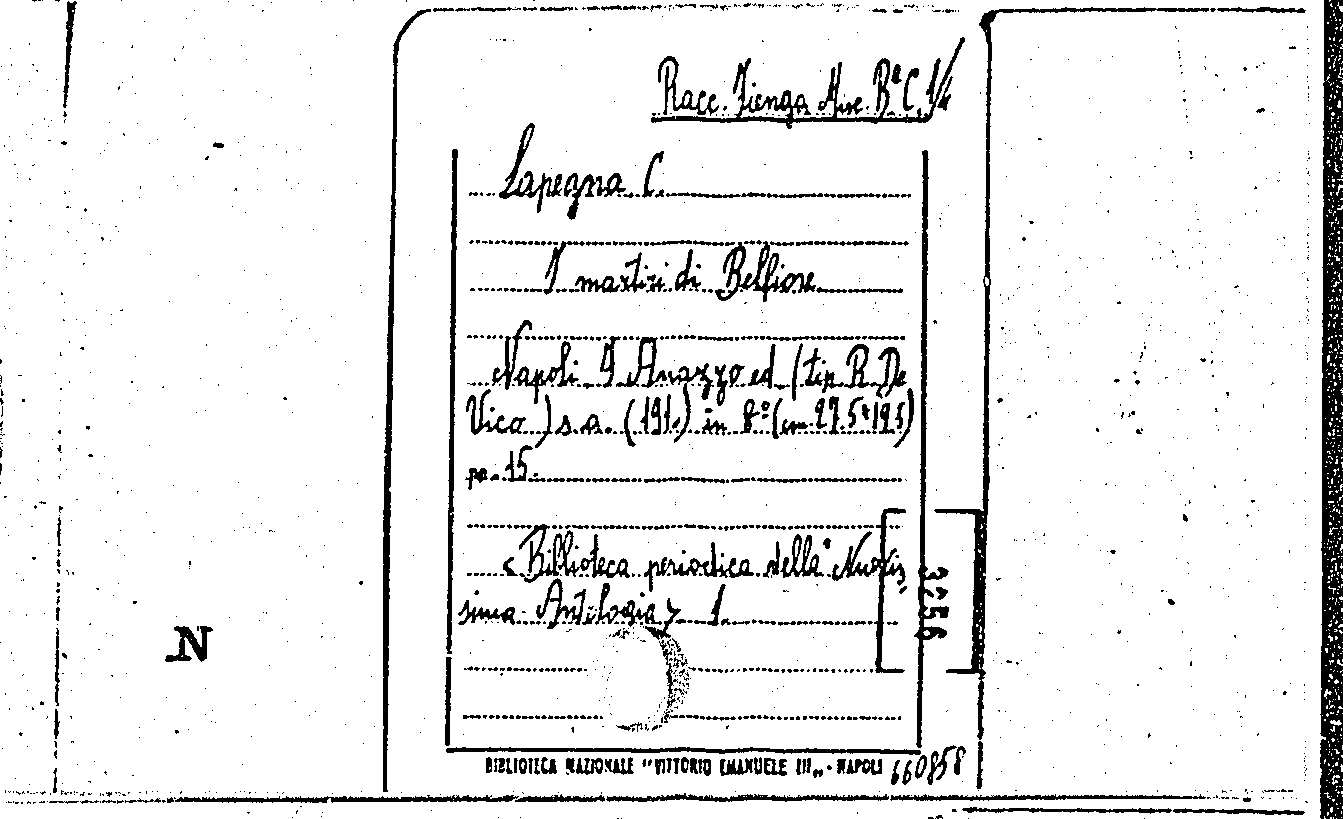 Racc. Fienga Misc. Bª C. 1/
Lapegna C.
I martiri di Belfiore.
Napoli I Anazzo ed (tip R De
Vico) s.a. (191.) in 8º (cm. 27.5x19.5)
pp. 15.
<Biblioteca periodica della "Nuovis
sima Antologia> 1.
3256
N
BIBLIOTECA NAZIONALE "VITTORIO EMANUELE III" - NAPOLI 660858